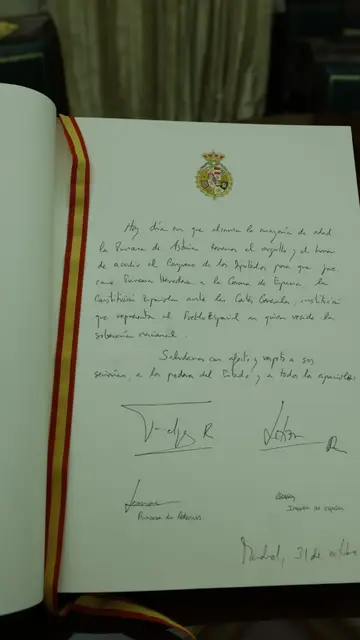 Hoy día en que alcanza la mayoría de edad
la Princesa de Asturias tenemos el orgullo y el honor
de acudir al Congreso de los Diputados para que jure
como Princesa Heredera a la Corona de España la
Constitución Española ante las Cortes Generales, institución
que representa al Pueblo Español en quien reside la
soberanía nacional.
Saludamos con afecto y respeto a sus
señorías, a los poderes del Estado, y a todos los españoles
Felipe R
Letizia R
Leonor
Princesa de Asturias
Sofía
Infanta de España
Madrid, 31 de octubre